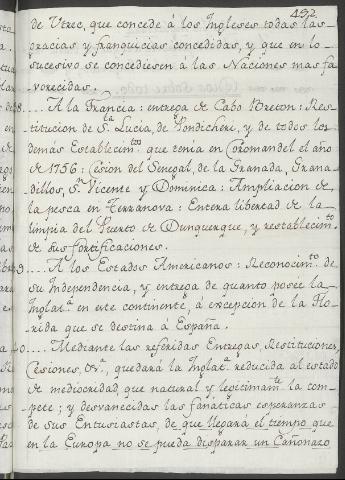 492
de Utrec, que concede á los Ingleses todas las
gracias y franquicias concedidas, y que en lo
sucesivo se concediesen á las Naciones mas fa
vorecidas.
A la Francia: entrega de Cabo Breton: Res
titucion de Sta. Lucia, de Pondicheri, y de todos los
demás Establecimtos. que tenia en Coromandel el año
de 1756: Cesion del Senegal, de la Granada, Grana
dillos, Sn. Vicente y Dominica: Ampliacion de
la pesca en Terranova: Entera libertad de la
limpia del Puerto de Dunquerque, y restablecimto.
de sus fortificaciones.
A los Estados Americanos: Reconocimto. de
su Independencia, y entrega de quanto posée la
Inglata. en este continente, á excepcion de la Flo
rida que se destina á España.
Mediante las referidas Entregas, Restituciones,
Cesiones, &a., quedará la Inglata. reducida al estado
de mediocridad, que natural y legitimamte. la com
pete; y desvanecidas las fanáticas esperanzas
de sus Entusiastas, de que llegará el tiempo que
en la Europa no se pueda disparar un Cañonazo